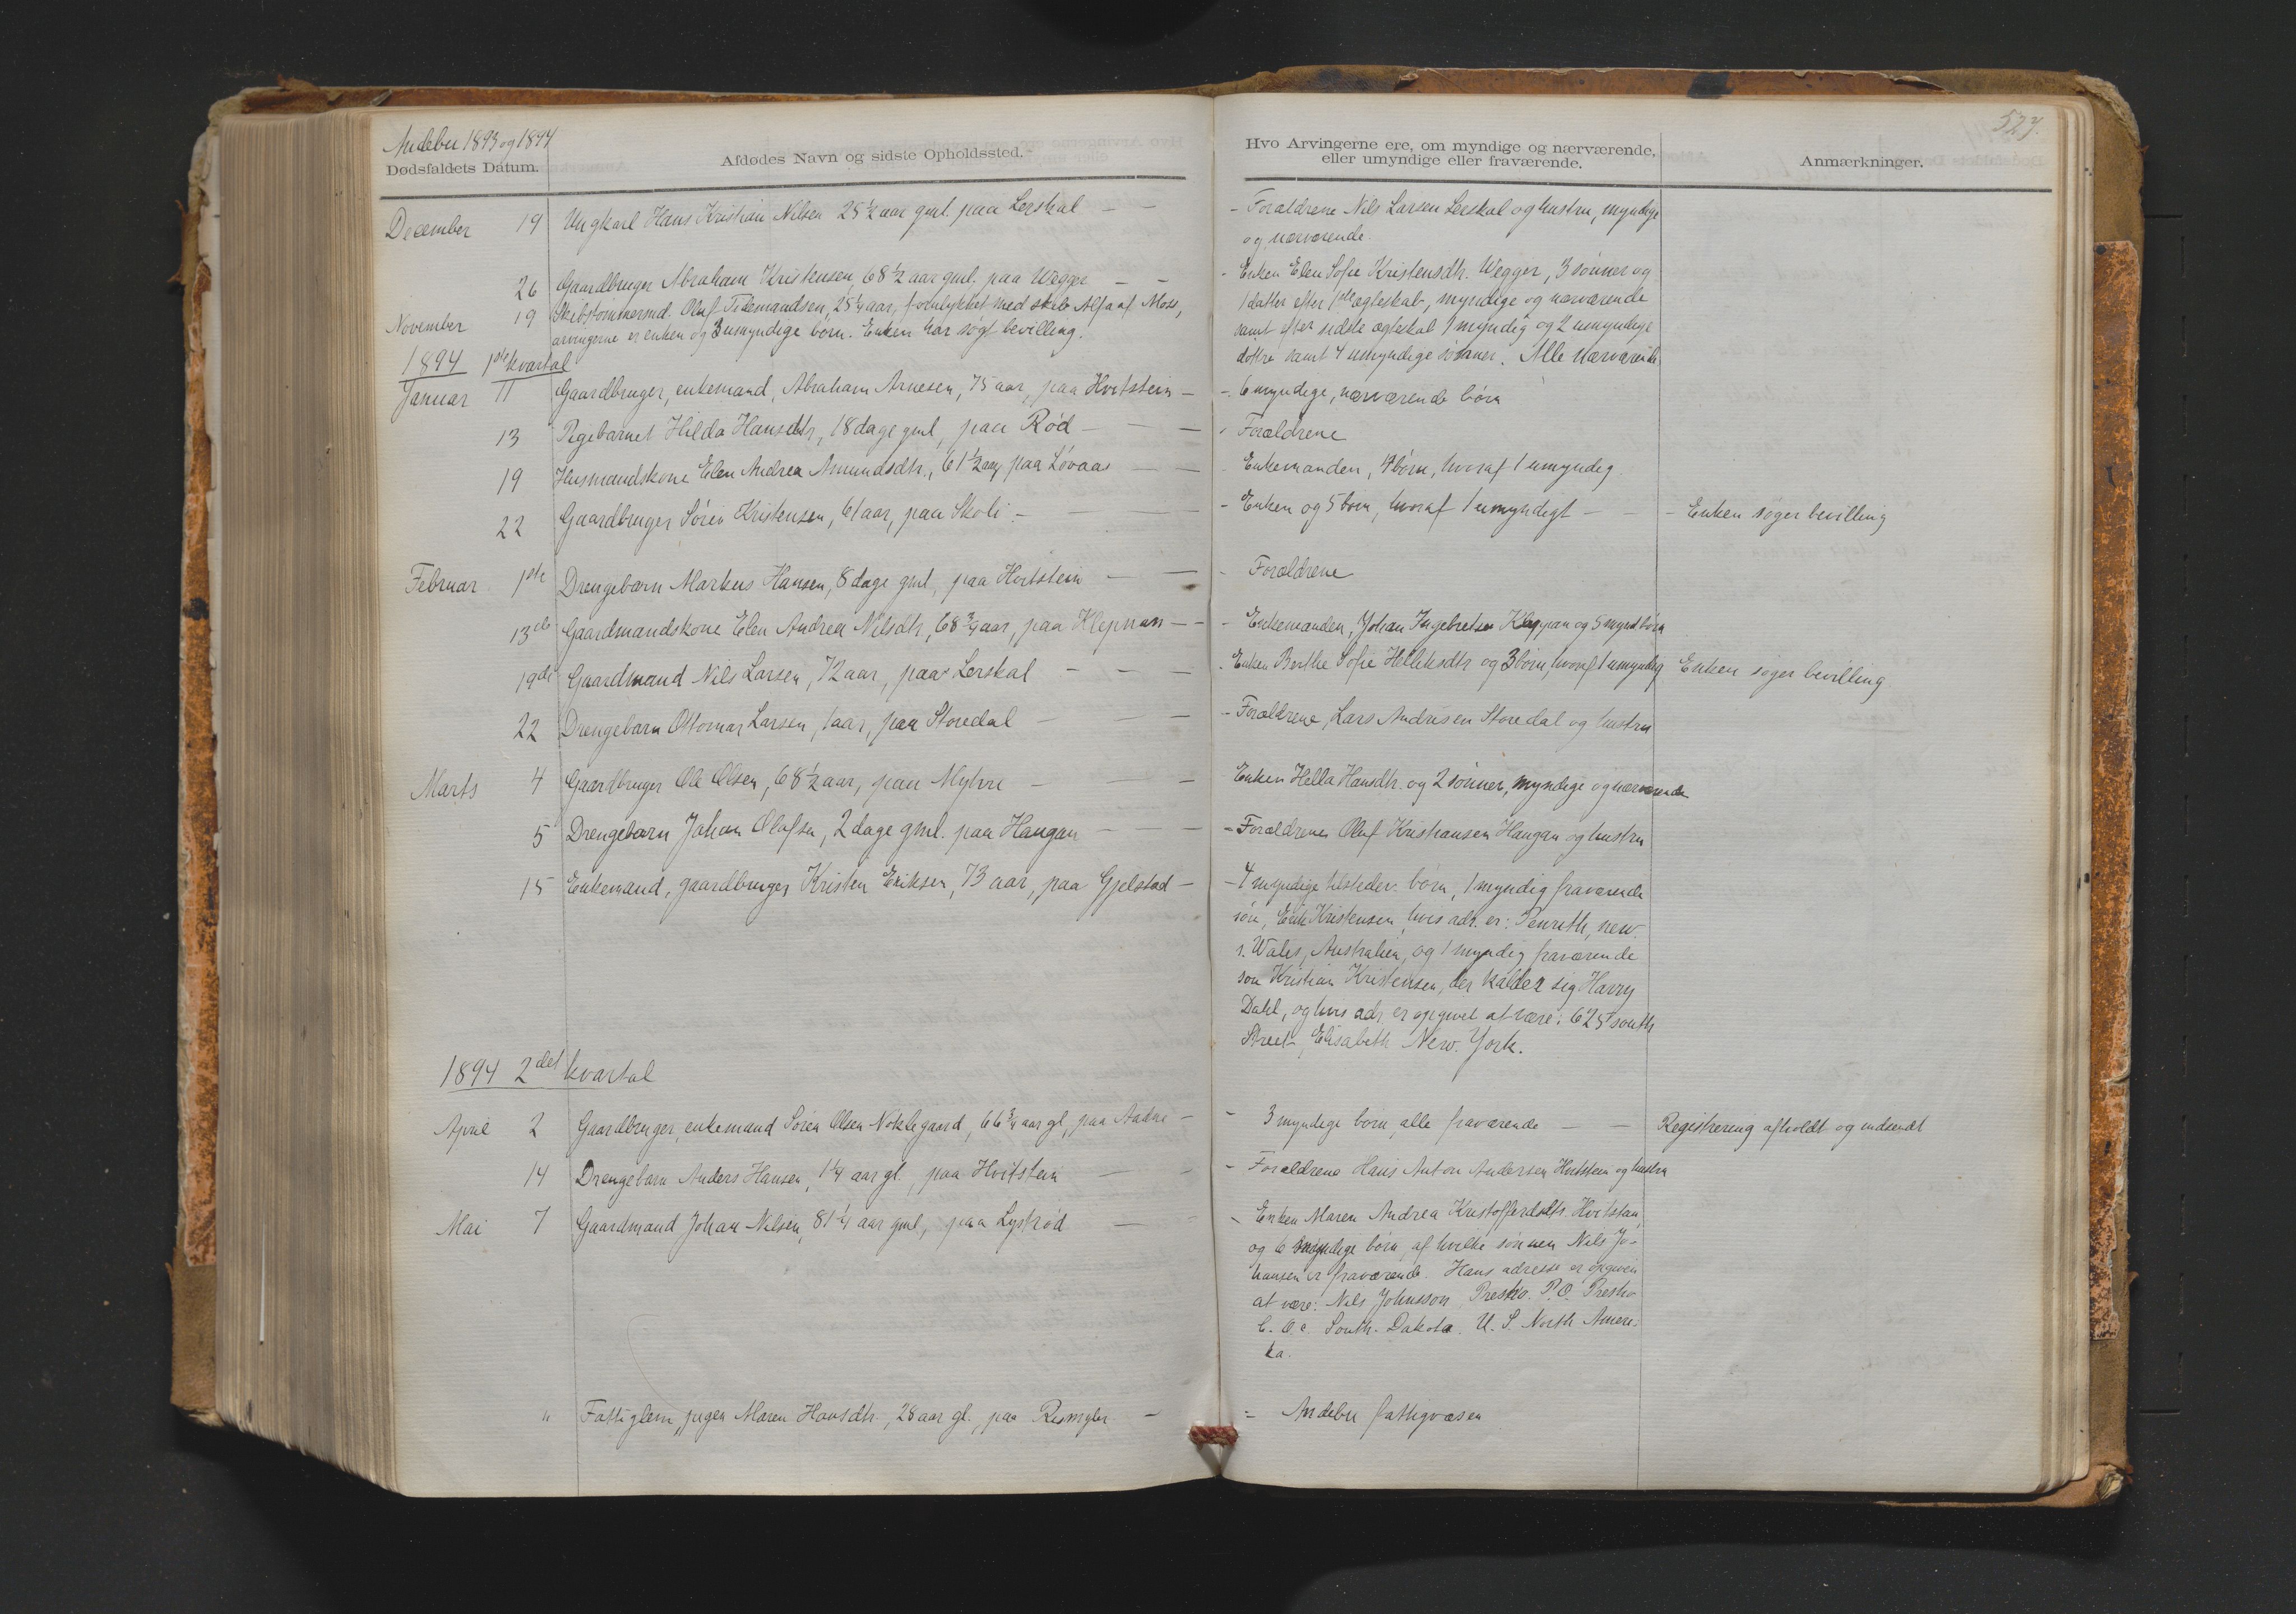 Andebu 1893 og 1894
527.
Dødsfaldets Datum.
Afdødes Navn og sidste Opholdssted.
Hvo Arvingerne ere, om myndige og nærværende,
eller umyndige eller fraværende.
Anmærkninger.
December 19 Ungkarl Hans Kristian Nilsen 25 ½ aar gml. paa Lerskal
- Forældrene Nils Larsen Lerskal og hustru, myndige
og nærværende.
26 Gaardbruger Abraham Kristensen, 68 ½ aar gml. paa Wegger
- Enken Elen Sofie Kristensdtr. Wegger, 3 sønner og
1 datter efter 1ste ægteskab, myndige og nærværende
samt efter sidste ægteskab 1 myndig og 2 umyndige
døttre samt 4 umyndige sønner. Alle nærværende.
November 19 Skibstømmermd. Oluf Tilemandsen, 25 ¼ aar, forulykket med skib Alfa af Moss,
arvingerne er enken og 3 umyndige børn. Enken har søgt bevilling.
1894 1ste kvartal
Januar 11 Gaardbruger, enkemand, Abraham Arnesen, 75 aar, paa Hvitstein -
- 6 myndige, nærværende børn
13 Pigebarnet Hilda Hansdtr, 18 dage gml, paa Rød -
- Forældrene
19 Husmandskone Elen Andrea Amundsdtr., 61 ½ aar paa Løvaas
Enkemanden, 4 børn, hvoraf 1 umyndig.
22 Gaardbruger Søren Kristensen, 61 aar, paa Skoli -
- Enken og 5 børn, hvoraf 1 umyndigt -
- Enken søger bevilling
Februar 1ste Drengebarn Markus Hansen, 8 dage gml, paa Hvitstein
- Forældrene
13de Gaardmandskone Elen Andrea Nilsdtr, 68 ¾ aar, paa Klepnan -
- Enkemanden, Johan Ingebretsen Kleppan og 5 mynd børn
19de Gaardmand Nils Larsen, 72 aar, paa Lerskal
Enken Berthe Sofie Helliksdtr og 3 børn, hvoraf 1 umyndig
Enken søger bevilling
22 Drengebarn Ottomar Larsen, 1 aar, paa Storedal
- Forældrene, Lars Andrisen Storedal og hustru
Marts 4 Gaardbruger Ole Olsen, 68 ½ aar, paa Myhre
Enken Hella Hansdtr. og 2 sønner, myndige og nærværende
5 Drengebarn Johan Olafsen, 2 dage gml. paa Haugan
- Forældrene Oluf Kristiansen Haugan og hustru
15 Enkemand, gaardbruger Kristen Eriksen, 73 aar, paa Gjelstad -
- 4 myndige tilstedev. børn, 1 myndig fraværende
søn, Erik Kristensen, hvis adr. er: Penrith, new.
s. Wales, Australien, og 1 myndig fraværende
søn Kristian Kristensen, der kalder sig Harry
Dahl, og hvis adr er opgivet at være: 625 south
Street, Elisabeth New. York.
1894 2det kvartal
April 2 Gaardbruger, enkemand Søren Olsen Nøklegaard, 66 ¾ aar gl, paa
- 3 myndige børn, alle fraværende
Registrering afholdt og indsendt
14 Drengebarn Anders Hansen, 1 ¼ aar gl, paa Hvitstein
- Forældrene Hans Anton Andersen Hvitstein og hustru
Mai 7 Gaardmand Johan Nilsen, 81 ¼ aar gml, paa Lystrød
- Enken Maren Andrea Kristoffersdtr. Hvitstein,
og 6 myndige børn, af hvilke sønnen Nils Jo-
hansen er fraværende. Hans adresse er opgiven
at være: Nils Johnsson, Presho. P.O. Presho
C. O. c. South. Dakota. U. S. North Ameri-
ka.
" Fattiglem, pigen Maren Hansdtr, 28 aar gl. paa
- Andebu fattigvæsen